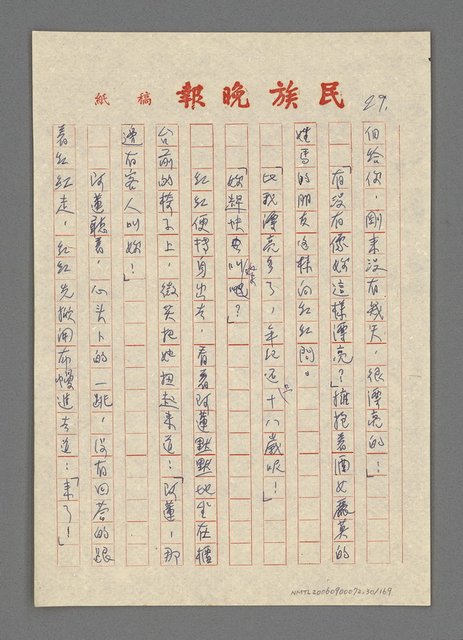 民族晚報 稿紙
29.
伯給你，剛来没有幾天，很漂亮的！」
「有没有像妳這樣漂亮？」擁抱着酒女麗英的
姓馬的朋友這樣向紅紅問。
「比我漂亮多了，年紀还只十八歲呢！」
「妳趕快去叫她来吧？」
紅紅便轉身出去，看着阿蓮默默地坐在櫃
台前的椅子上，微笑把她扭起来道：「阿蓮，那
邊有客人叫妳！」
阿蓮聽着，心头卜的一跳，没有回答的跟
着紅紅走，紅紅先掀開布幔進去道：「来了！」
NMTL20060900072.30/169